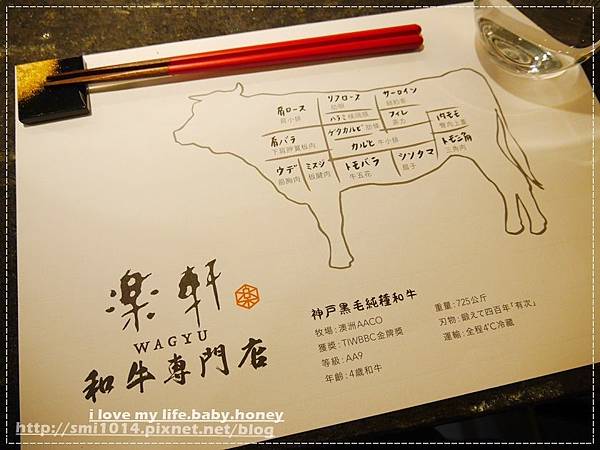 肩ロース
肩小排
リブロース
肋眼
サーロイン
紐約客
ハラミ 橫隔膜
フィレ
菲力
肩バラ
下肩胛翼板肉
ゲタカルビ 肋條
カルビ 牛小排
内モモ
臀肉上蓋
ウデ
肩胸肉
ミスジ
板腱肉
トモバラ
牛五花
シンタマ
腰子
トモニ角
三角肉
楽軒
WAGYU
和牛專門店
神戸黒毛純種和牛
牧場:澳洲AACO
獲獎:TIWBBC金牌獎
等級:AA9
年齡:4歲和牛
重量:725公斤
刃物:鍛えて四百年「有次」
運輸:全程4℃冷藏
i love my life.baby.honey
http://smi1014.pixnet.net/blog